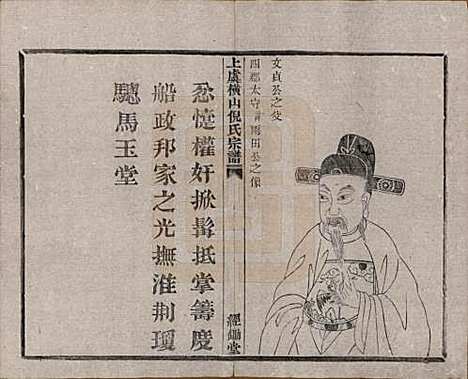 文貞公之父
四郡太守諱雨田公之像
上虞橫山倪氏宗譜
經鋤堂
忿愾權奸掀髯抵掌籌度
船政邦家之光撫淮荆瓊
驄馬玉堂